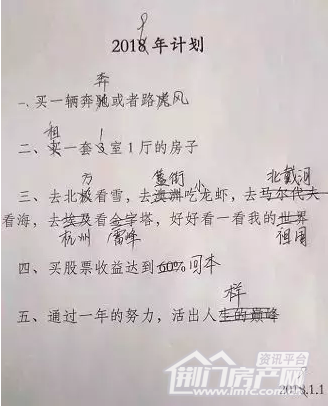 9
2018年计划
奔
一、买一辆奔驰或者路虎风
租 1
二、买一套3室1厅的房子
方 簋街 小 北戴河
三、去北极看雪，去澳洲吃龙虾，去马尔代夫
看海，去埃及看金字塔，好好看一看我的世界
杭州 雷峰 祖国
四、买股票收益达到 回本
样
五、通过一年的努力，活出人生的巅峰
资讯平台
荆门房产网
2018.1.1